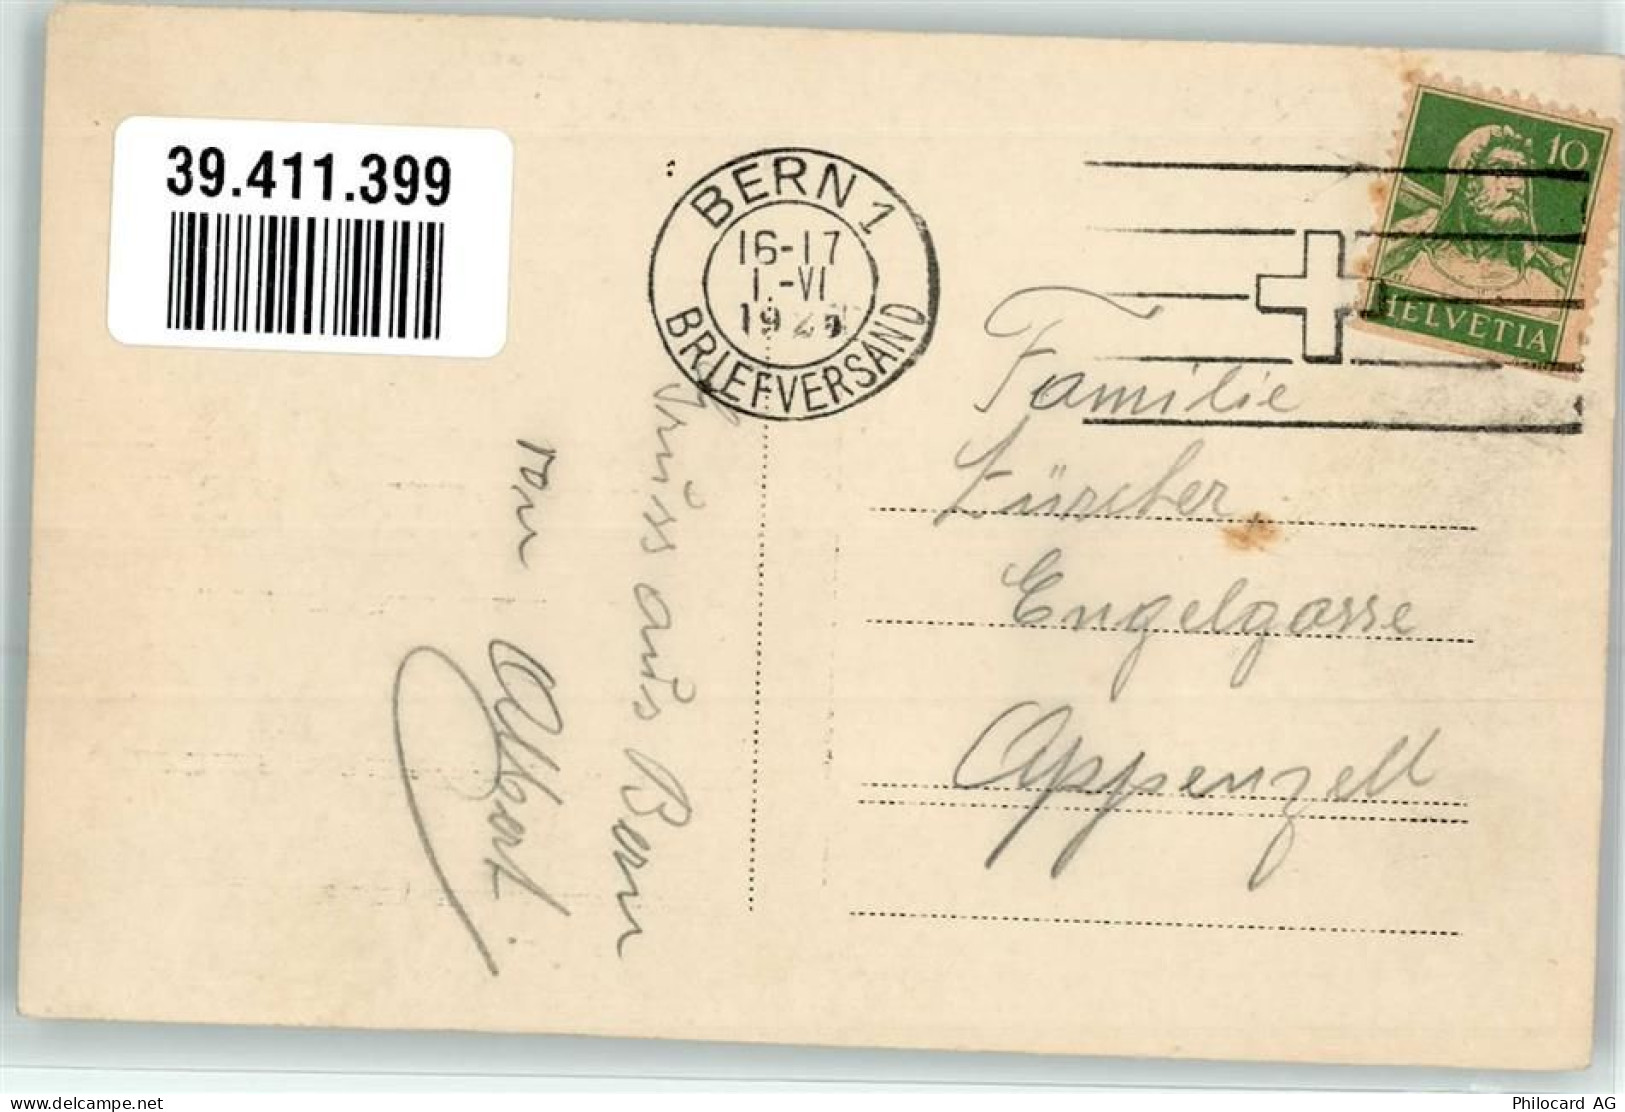 39.411.399
BERN 1
16-17
1.-VI
BRIEFVERSAND
10
HELVETIA
Familie
Zürcher
Engelgasse
Appenzell
Gruss aus Bern
von Albert.
delcampe.net
Philocard AG